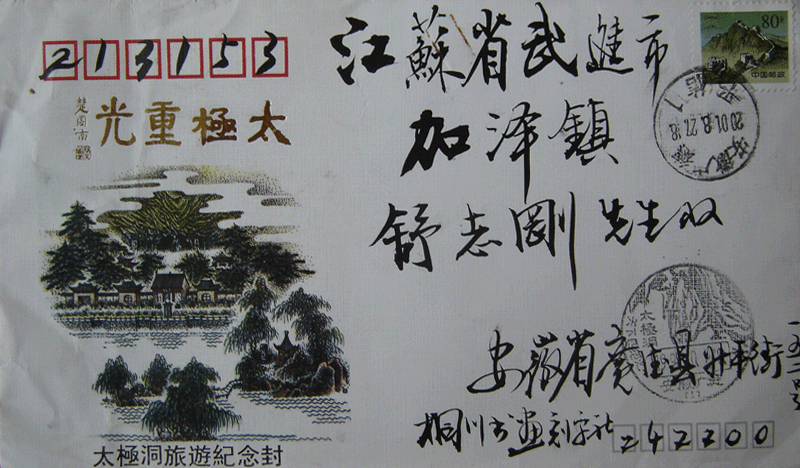 213153
江蘇省武進市
加泽鎮
舒志剛先生收
光重極太
楚圖南
80分
中国邮政
2001.8.21.18
太極洞
安徽省廣德县
桐川书画刻字社
242200
太極洞旅遊紀念封